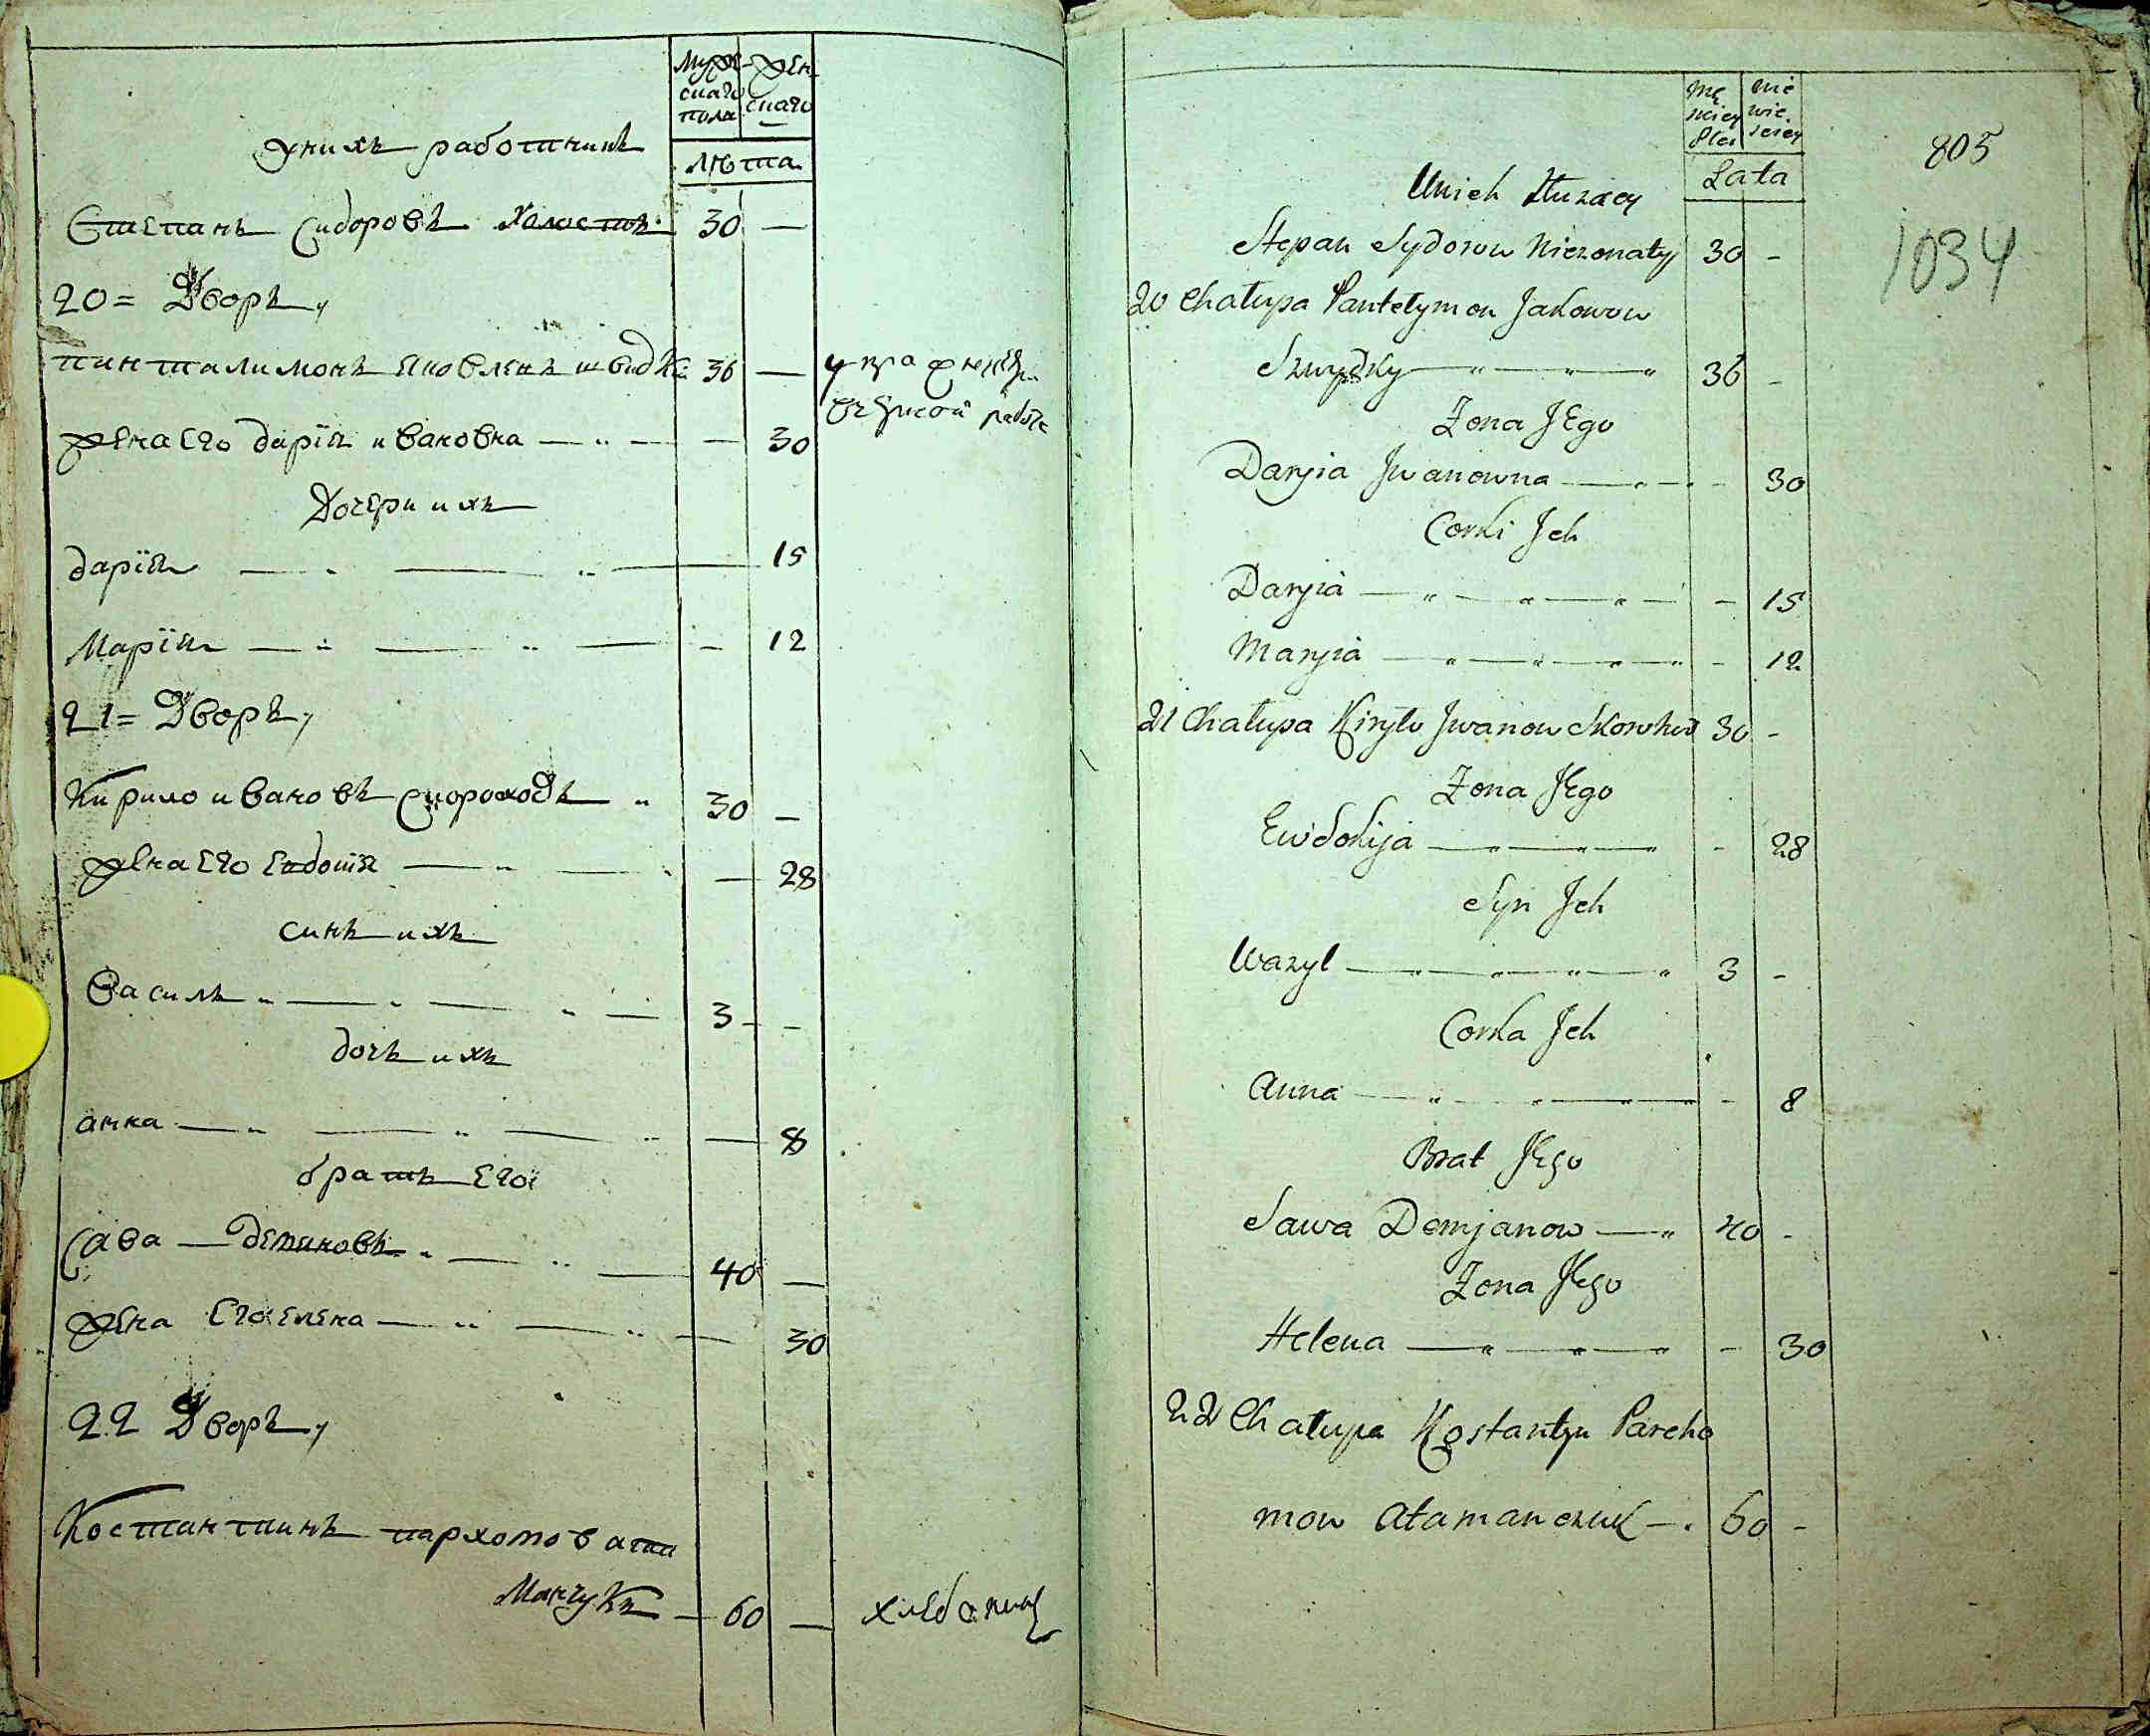 Муже
скаго
пола
жен
скаго
Лѣта
Уних работникъ
Степанъ Сидоровъ холостъ 30 —
20 = Дворъ,
пинталимонъ Яковленъ швидкъ 36 —
жена Его дарїя ивановна — — 30
Дочери ихъ
дарїя — — — 15
Марїя — — — 12
21 = Дворъ,
Кирило ивановъ скороходъ 30 —
жена Его Евдокія — — 28
синъ ихъ
Василъ — — 3 —
дочъ ихъ
анна — — — 8
братъ Его
Сава — демяновъ — 40 —
жена Его Елена — — 30
22 Дворъ,
Костантинъ пархомов ата
Манчукъ — 60 —
Mę
skiey
Płci
nie
wie
sciey
Lata
805
1034
Unich Słuzacy
Stepan Sydorow Niezonaty 30 -
20 Chałupa Pantełymon Jakowow
Szwydky — — 36 -
Zona JEgo
Daryia Jwanowna — - 30
Corki Jch
Daryia — — - 15
Maryia — — - 12
21 Chałupa Kiryło Jwanow Skorohod 30 -
Zona JEgo
Ewdokija — — - 28
Syn Jch
Wazyl — — 3 -
Corka Jch
Anna — — - 8
Brat JEgo
Sawa Demjanow — 40 -
Zona JEgo
Helena — — - 30
22 Chałupa Kostantyn Parcho
mow Atamanczuk — 60 -